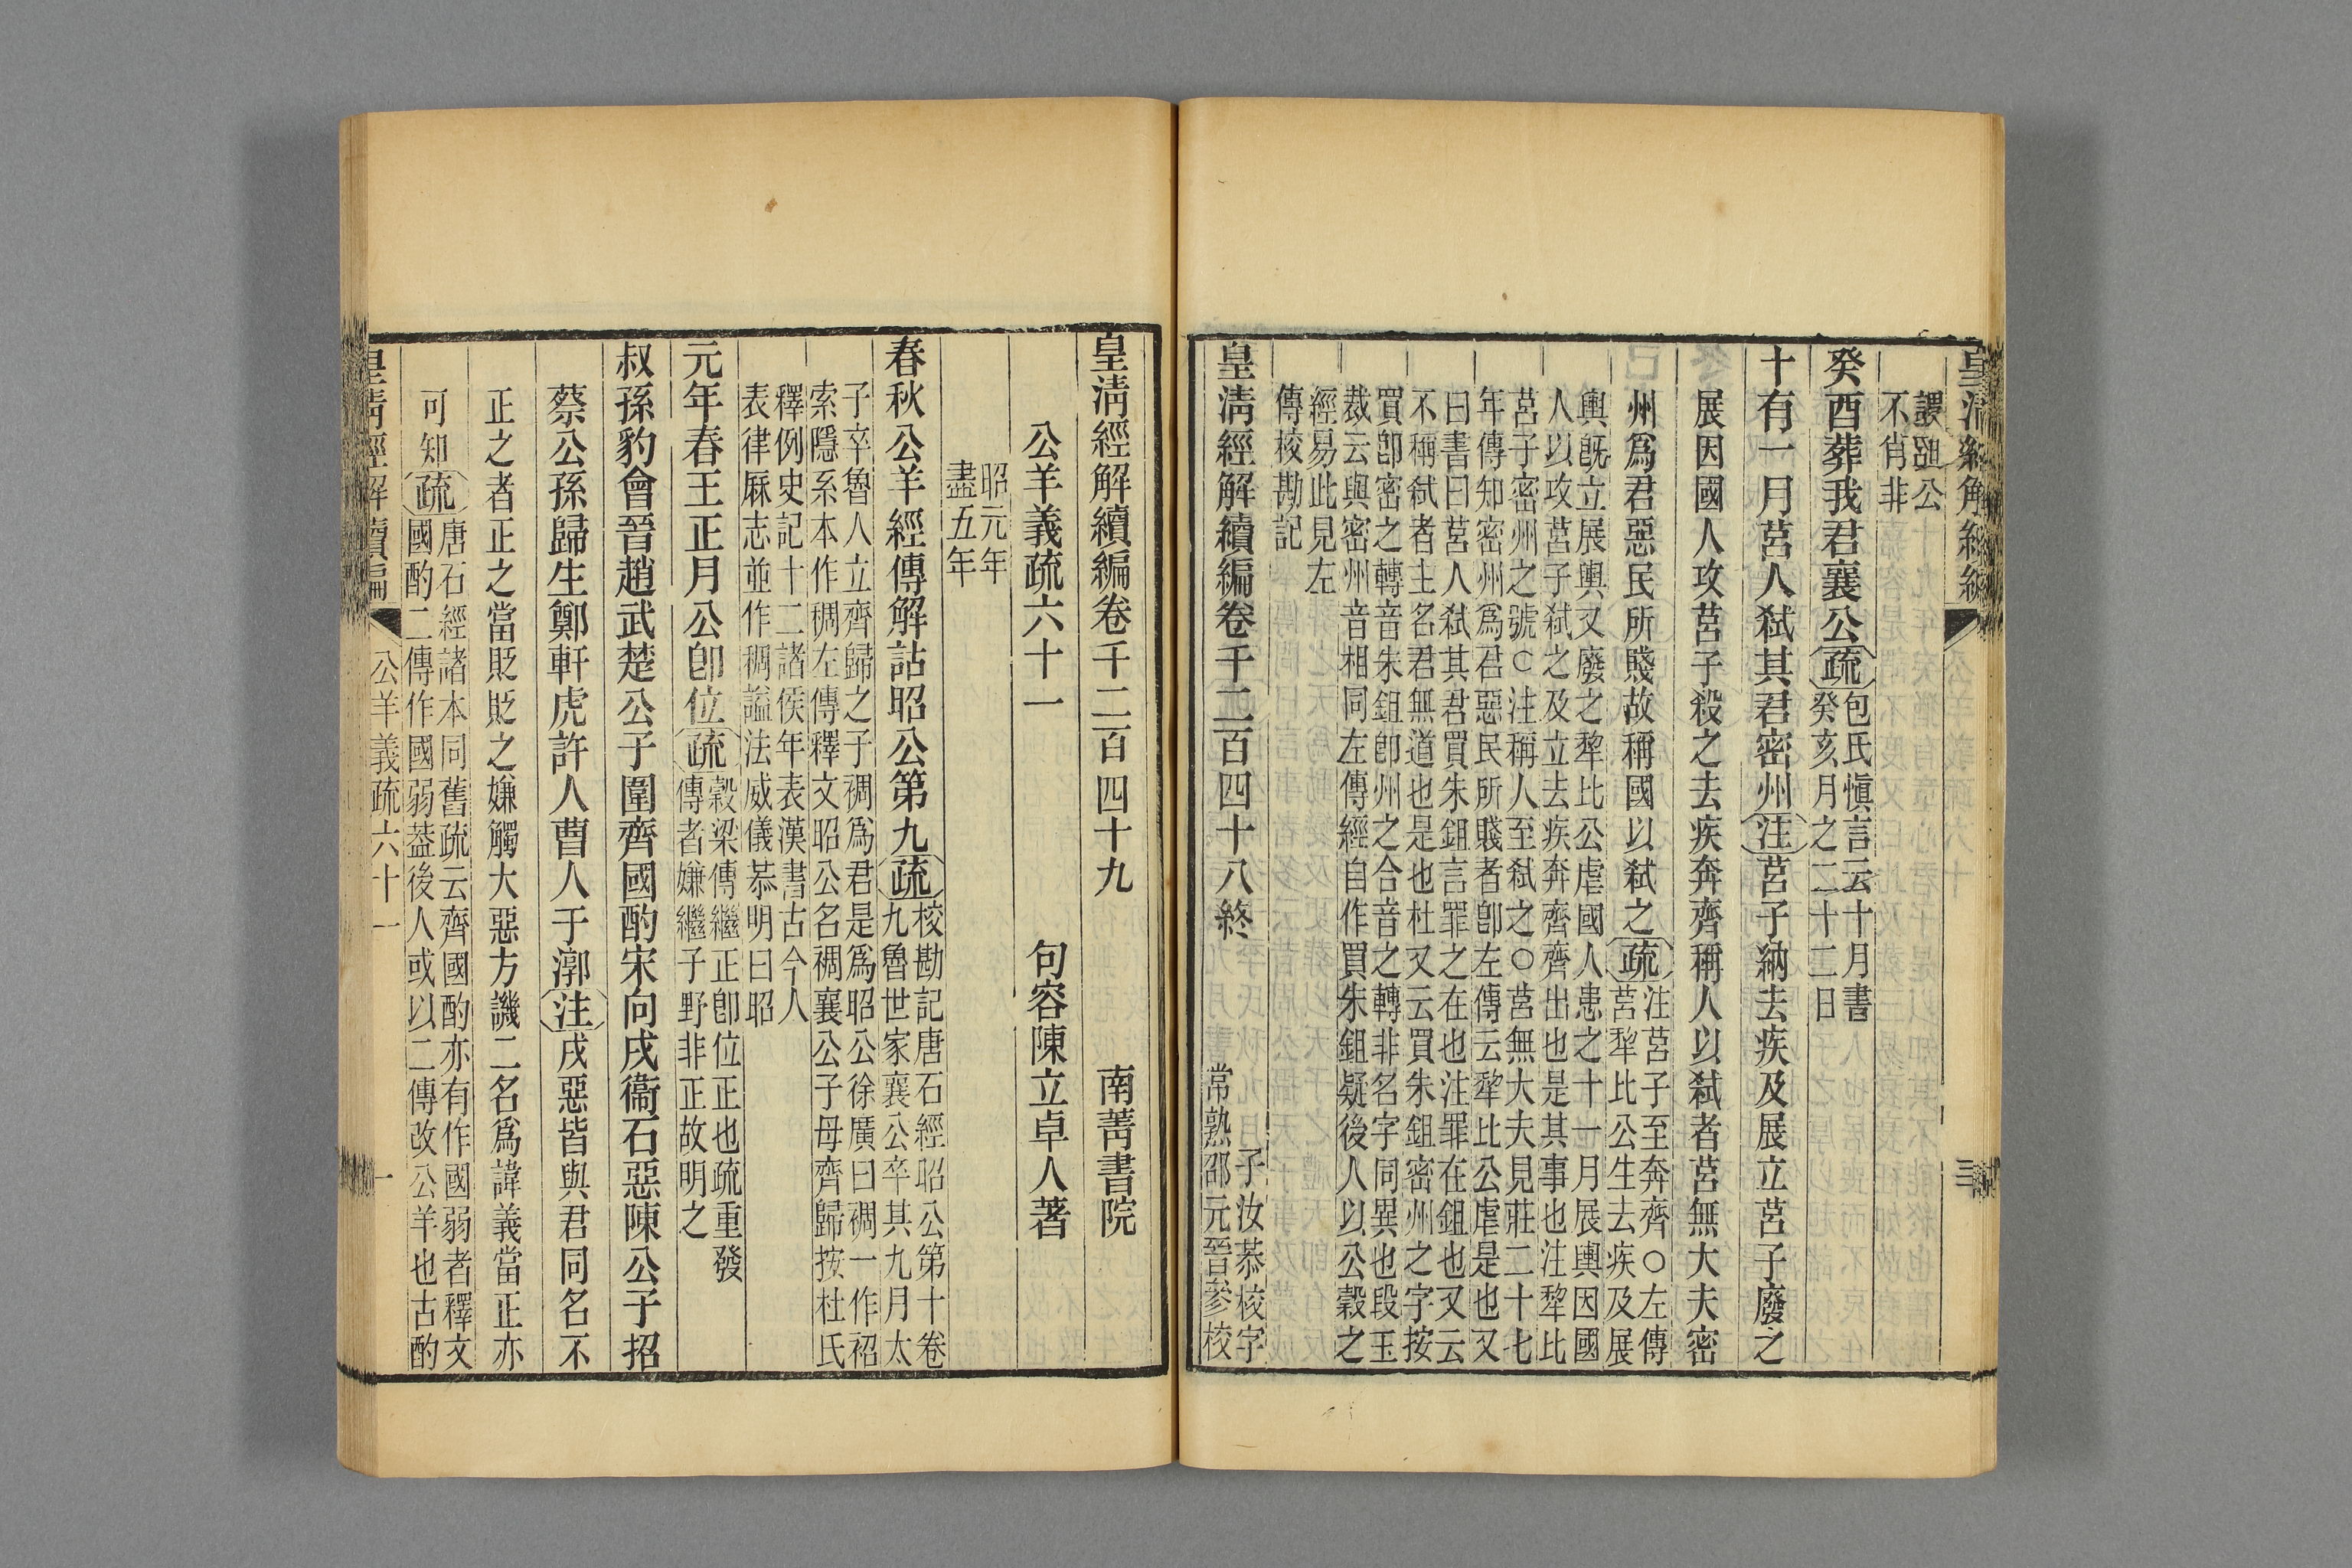 謖詛公
不肖非
癸酉葬我君襄公疏包氏愼言云十月書
癸亥月之二十二日
十有一月莒人弑其君密州注莒子納去疾及展立莒子廢之
展因國人攻莒子殺之去疾奔齊稱人以弑者莒無大夫密
州爲君惡民所賤故稱國以弑之疏注莒子至奔齊○左傳
莒犂比公生去疾及展
輿旣立展輿又廢之犂比公虐國人患之十一月展輿因國
人以攻莒子弑之及立去疾奔齊齊出也是其事也注犂比
莒子密州之號○注稱人至弑之○莒無大夫見莊二十七
年傳知密州爲君惡民所賤者卽左傳云犂比公虐是也又
曰書曰莒人弑其君買朱鉏言罪之在也注罪在鉏也又云
不稱弑者主名君無道也是也杜又云買朱鉏密州之字按
買卽密之轉音朱鉏卽州之合音之轉非名字同異也段玉
裁云與密州音相同左傳經自作買朱鉏疑後人以公穀之
經易此見左
傳校勘記
皇淸經解續編卷千二百四十八終
子汝恭校字
常熟邵元晉參校
皇淸經解續編卷千二百四十九
南菁書院
公羊義疏六十一
句容陳立卓人著
昭元年
盡五年
春秋公羊經傳解詁昭公第九疏校勘記唐石經昭公第十卷
九魯世家襄公卒其九月太
子卒魯人立齊歸之子裯爲君是爲昭公徐廣曰裯一作袑
索隱系本作稠左傳釋文昭公名裯襄公子母齊歸按杜氏
釋例史記十二諸侯年表漢書古今人
表律厤志並作稠謚法威儀恭明曰昭
元年春王正月公卽位疏穀梁傳繼正卽位正也疏重發
傳者嫌繼子野非正故明之
叔孫豹會晉趙武楚公子圍齊國酌宋向戌衞石惡陳公子招
蔡公孫歸生鄭軒虎許人曹人于漷注戌惡皆與君同名不
正之者正之當貶貶之嫌觸大惡方譏二名爲諱義當正亦
可知疏唐石經諸本同舊疏云齊國酌亦有作國弱者釋文
國酌二傳作國弱葢後人或以二傳改公羊也古酌
皇淸經解續編
公羊義疏六十一
一